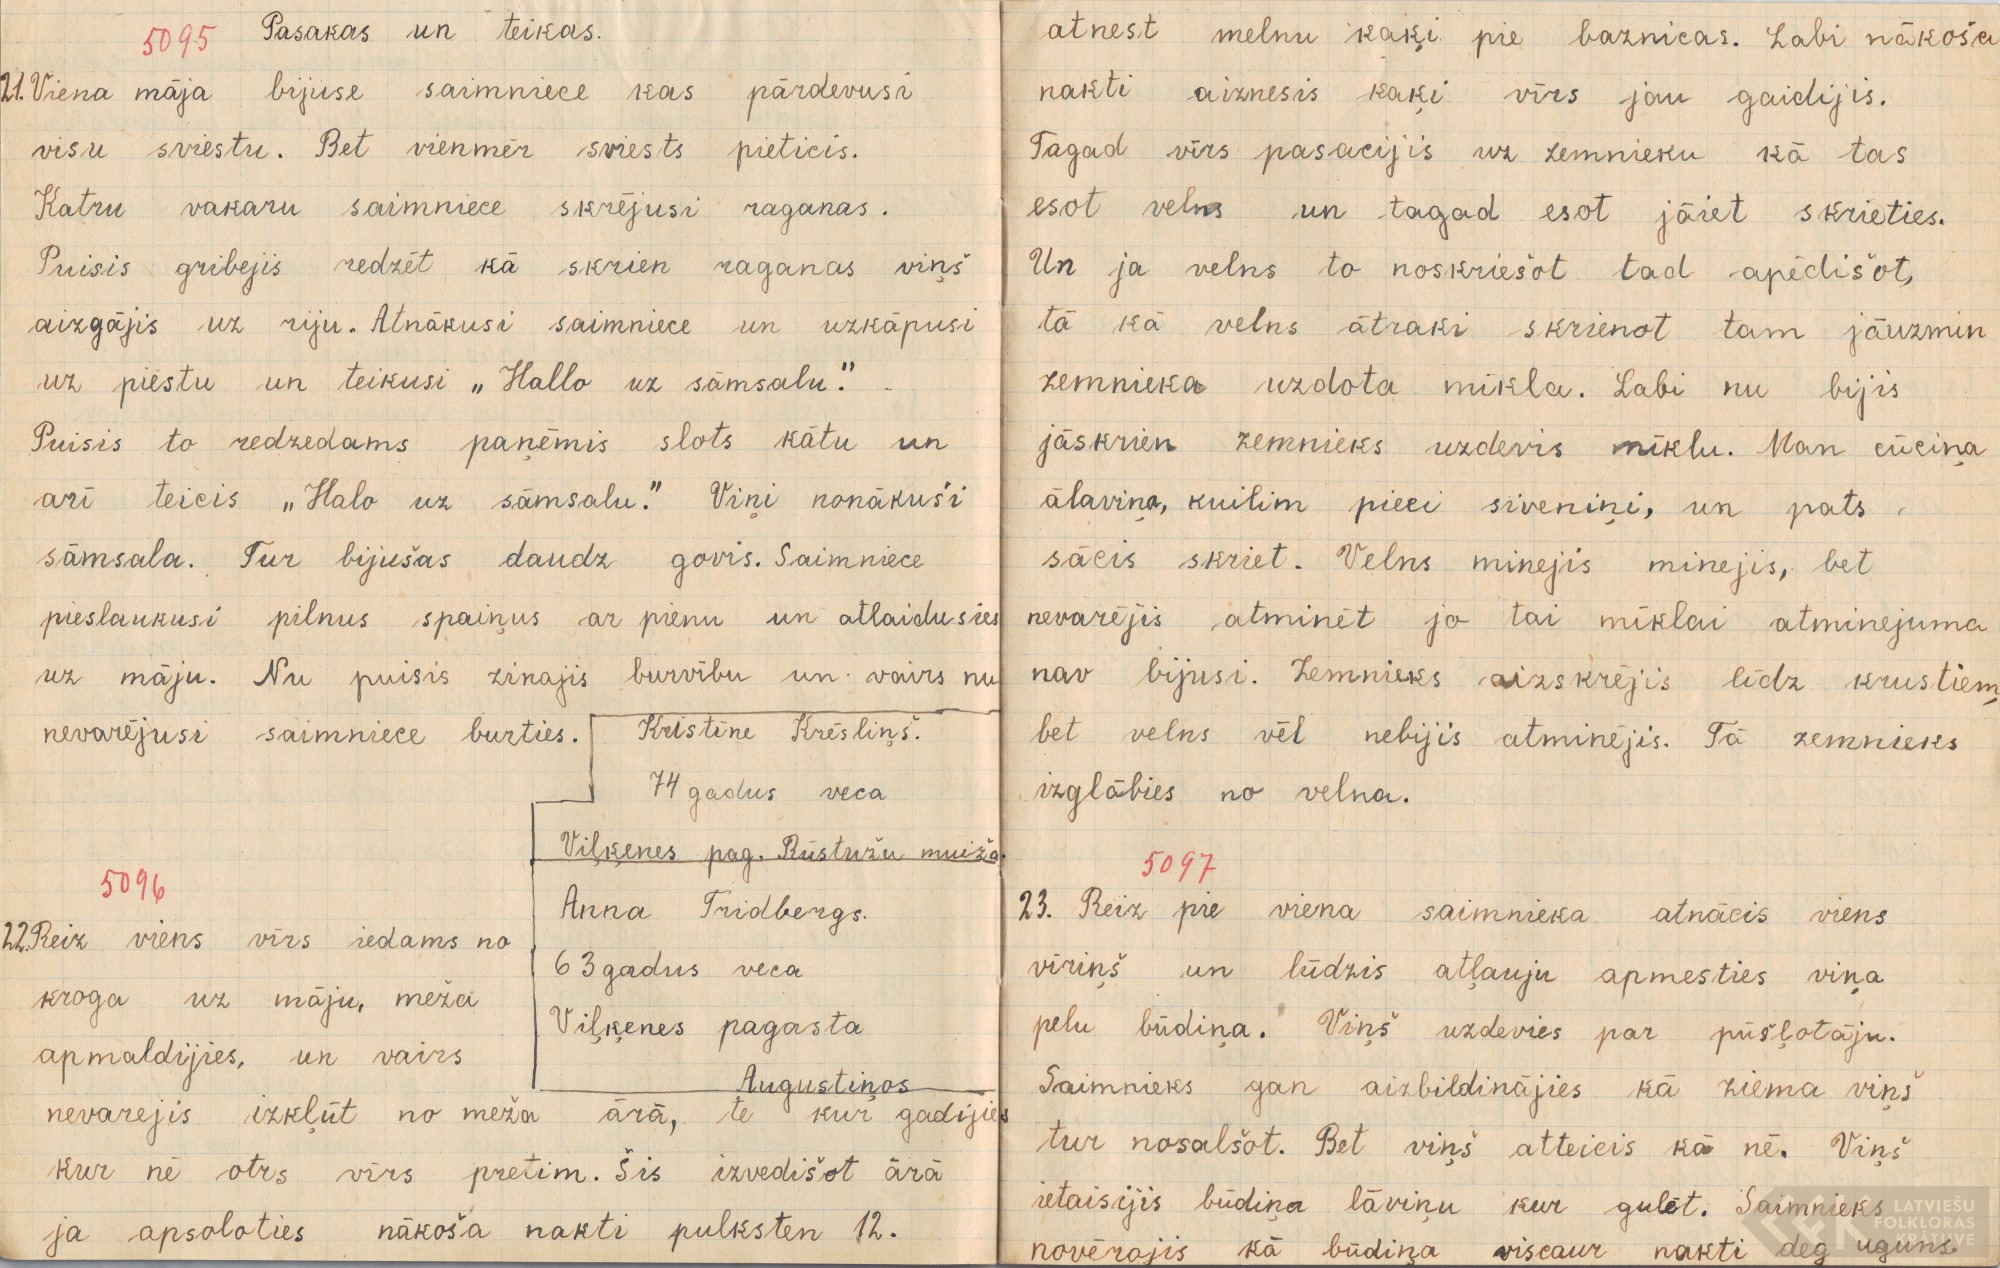 5095 Pasakas un teikas.
21. Viena māja bijuse saimniece kas pārdevusi
visu sviestu. Bet vienmēr sviests pieticis.
Katru vakaru saimniece skrējusi raganas.
Puisis gribejis redzēt kā skrien raganas viņš
aizgājis uz riju. Atnākusi saimniece un uzkāpusi
uz piestu un teikusi „Hallo uz sāmsalu."
Puisis to redzedams paņēmis slots kātu un
arī teicis „Halo uz sāmsalu." Viņi nonākuši
sāmsala. Tur bijušas daudz govis. Saimniece
pieslaukusi pilnus spaiņus ar pienu un atlaidusies
uz māju. Nu puisis zinajis burvību un vairs nu
nevarējusi saimniece burties.
Kristīne Krēsliņš.
74 gadus veca
Viļķenes pag. Rūstužu muiža.
Anna Fridbergs.
63 gadus veca
Viļķenes pagasta
Augustiņos
5096
22. Reiz viens vīrs iedams no
kroga uz māju, meža
apmaldijies, un vairs
nevarejis izkļūt no meža ārā, te kur gadijies
kur nē otrs vīrs pretim. Šis izvedišot ārā
ja apsoloties nākoša nakti pulksten 12.
atnest melnu kaķi pie baznicas. Labi nākoša
nakti aiznesis kaķi vīrs jau gaidijis.
Tagad vīrs pasacijis uz zemnieku kā tas
esot velns un tagad esot jāiet skrieties.
Un ja velns to noskriešot tad apēdišot,
tā kā velns ātraki skrienot tam jāuzmin
zemnieka uzdota mīkla. Labi nu bijis
jāskrien zemnieks uzdevis mīklu. Man cūciņa
ālaviņa, kuilim pieci siveniņi, un pats
sācis skriet. Velns minejis minejis, bet
nevarējis atminēt jo tai mīklai atminejuma
nav bijusi. Zemnieks aizskrējis līdz krustiem,
bet velns vēl nebijis atminējis. Tā zemnieks
izglābies no velna.
5097
23. Reiz pie viena saimnieka atnācis viens
vīriņš un lūdzis atļauju apmesties viņa
pelu būdiņa. Viņš uzdevies par pūšļotāju.
Saimnieks gan aizbildinājies kā ziema viņš
tur nosalšot. Bet viņš atteicis kā nē. Viņš
ietaisijis būdiņa lāviņu kur gulēt. Saimnieks
novērojis kā būdiņa viscaur nakti deg uguns.
LATVIEŠU
FOLKLORAS
KRĀTUVE